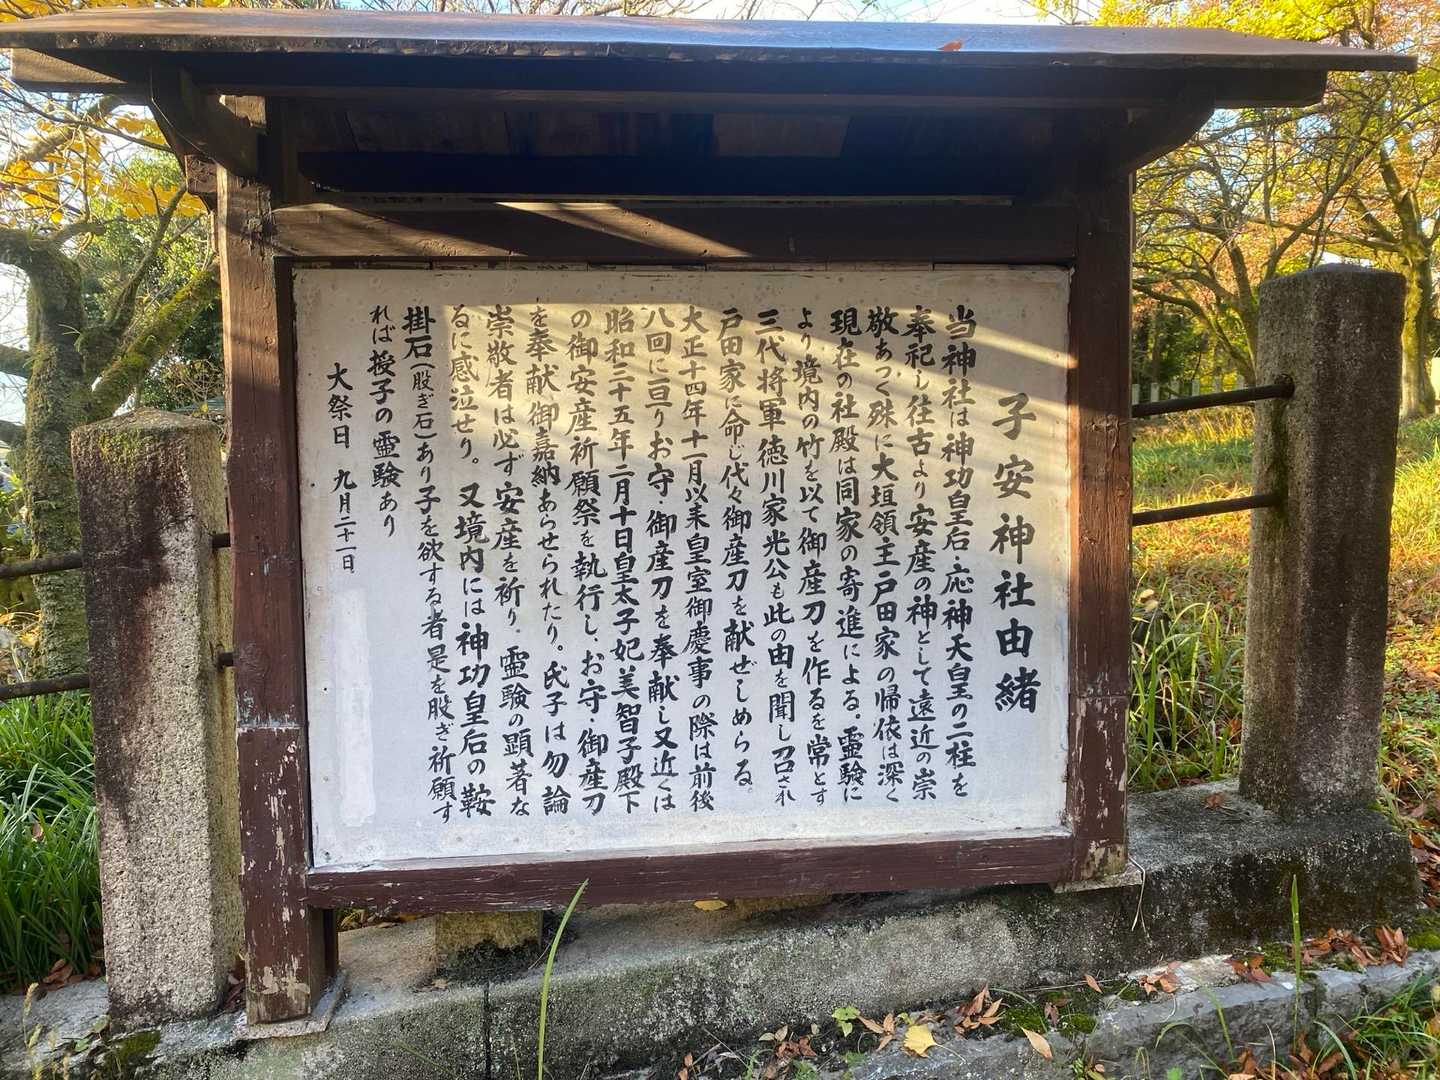 子安神社由緒
当神社は神功皇后・応神天皇の二柱を
奉祀し往古より安産の神として遠近の崇
敬あつく殊に大垣領主戸田家の帰依は深く
現在の社殿は同家の寄進による。霊験に
より境内の竹を以て御産刀を作るを常とす
三代将軍徳川家光公も此の由を聞し召され
戸田家に命じ代々御産刀を献ぜしめらる。
大正十四年十一月以来皇室御慶事の際は前後
八回に亘りお守・御産刀を奉献し又近くは
昭和三十五年二月十日皇太子妃美智子殿下
の御安産祈願祭を執行し、お守・御産刀
を奉献、御嘉納あらせられたり。氏子は勿論
崇敬者は必ず安産を祈り、霊験の顕著な
るに感泣せり。又境内には神功皇后の鞍
掛石(股ぎ石)あり子を欲する者是を股ぎ祈願す
れば授子の霊験あり
大祭日 九月二十一日